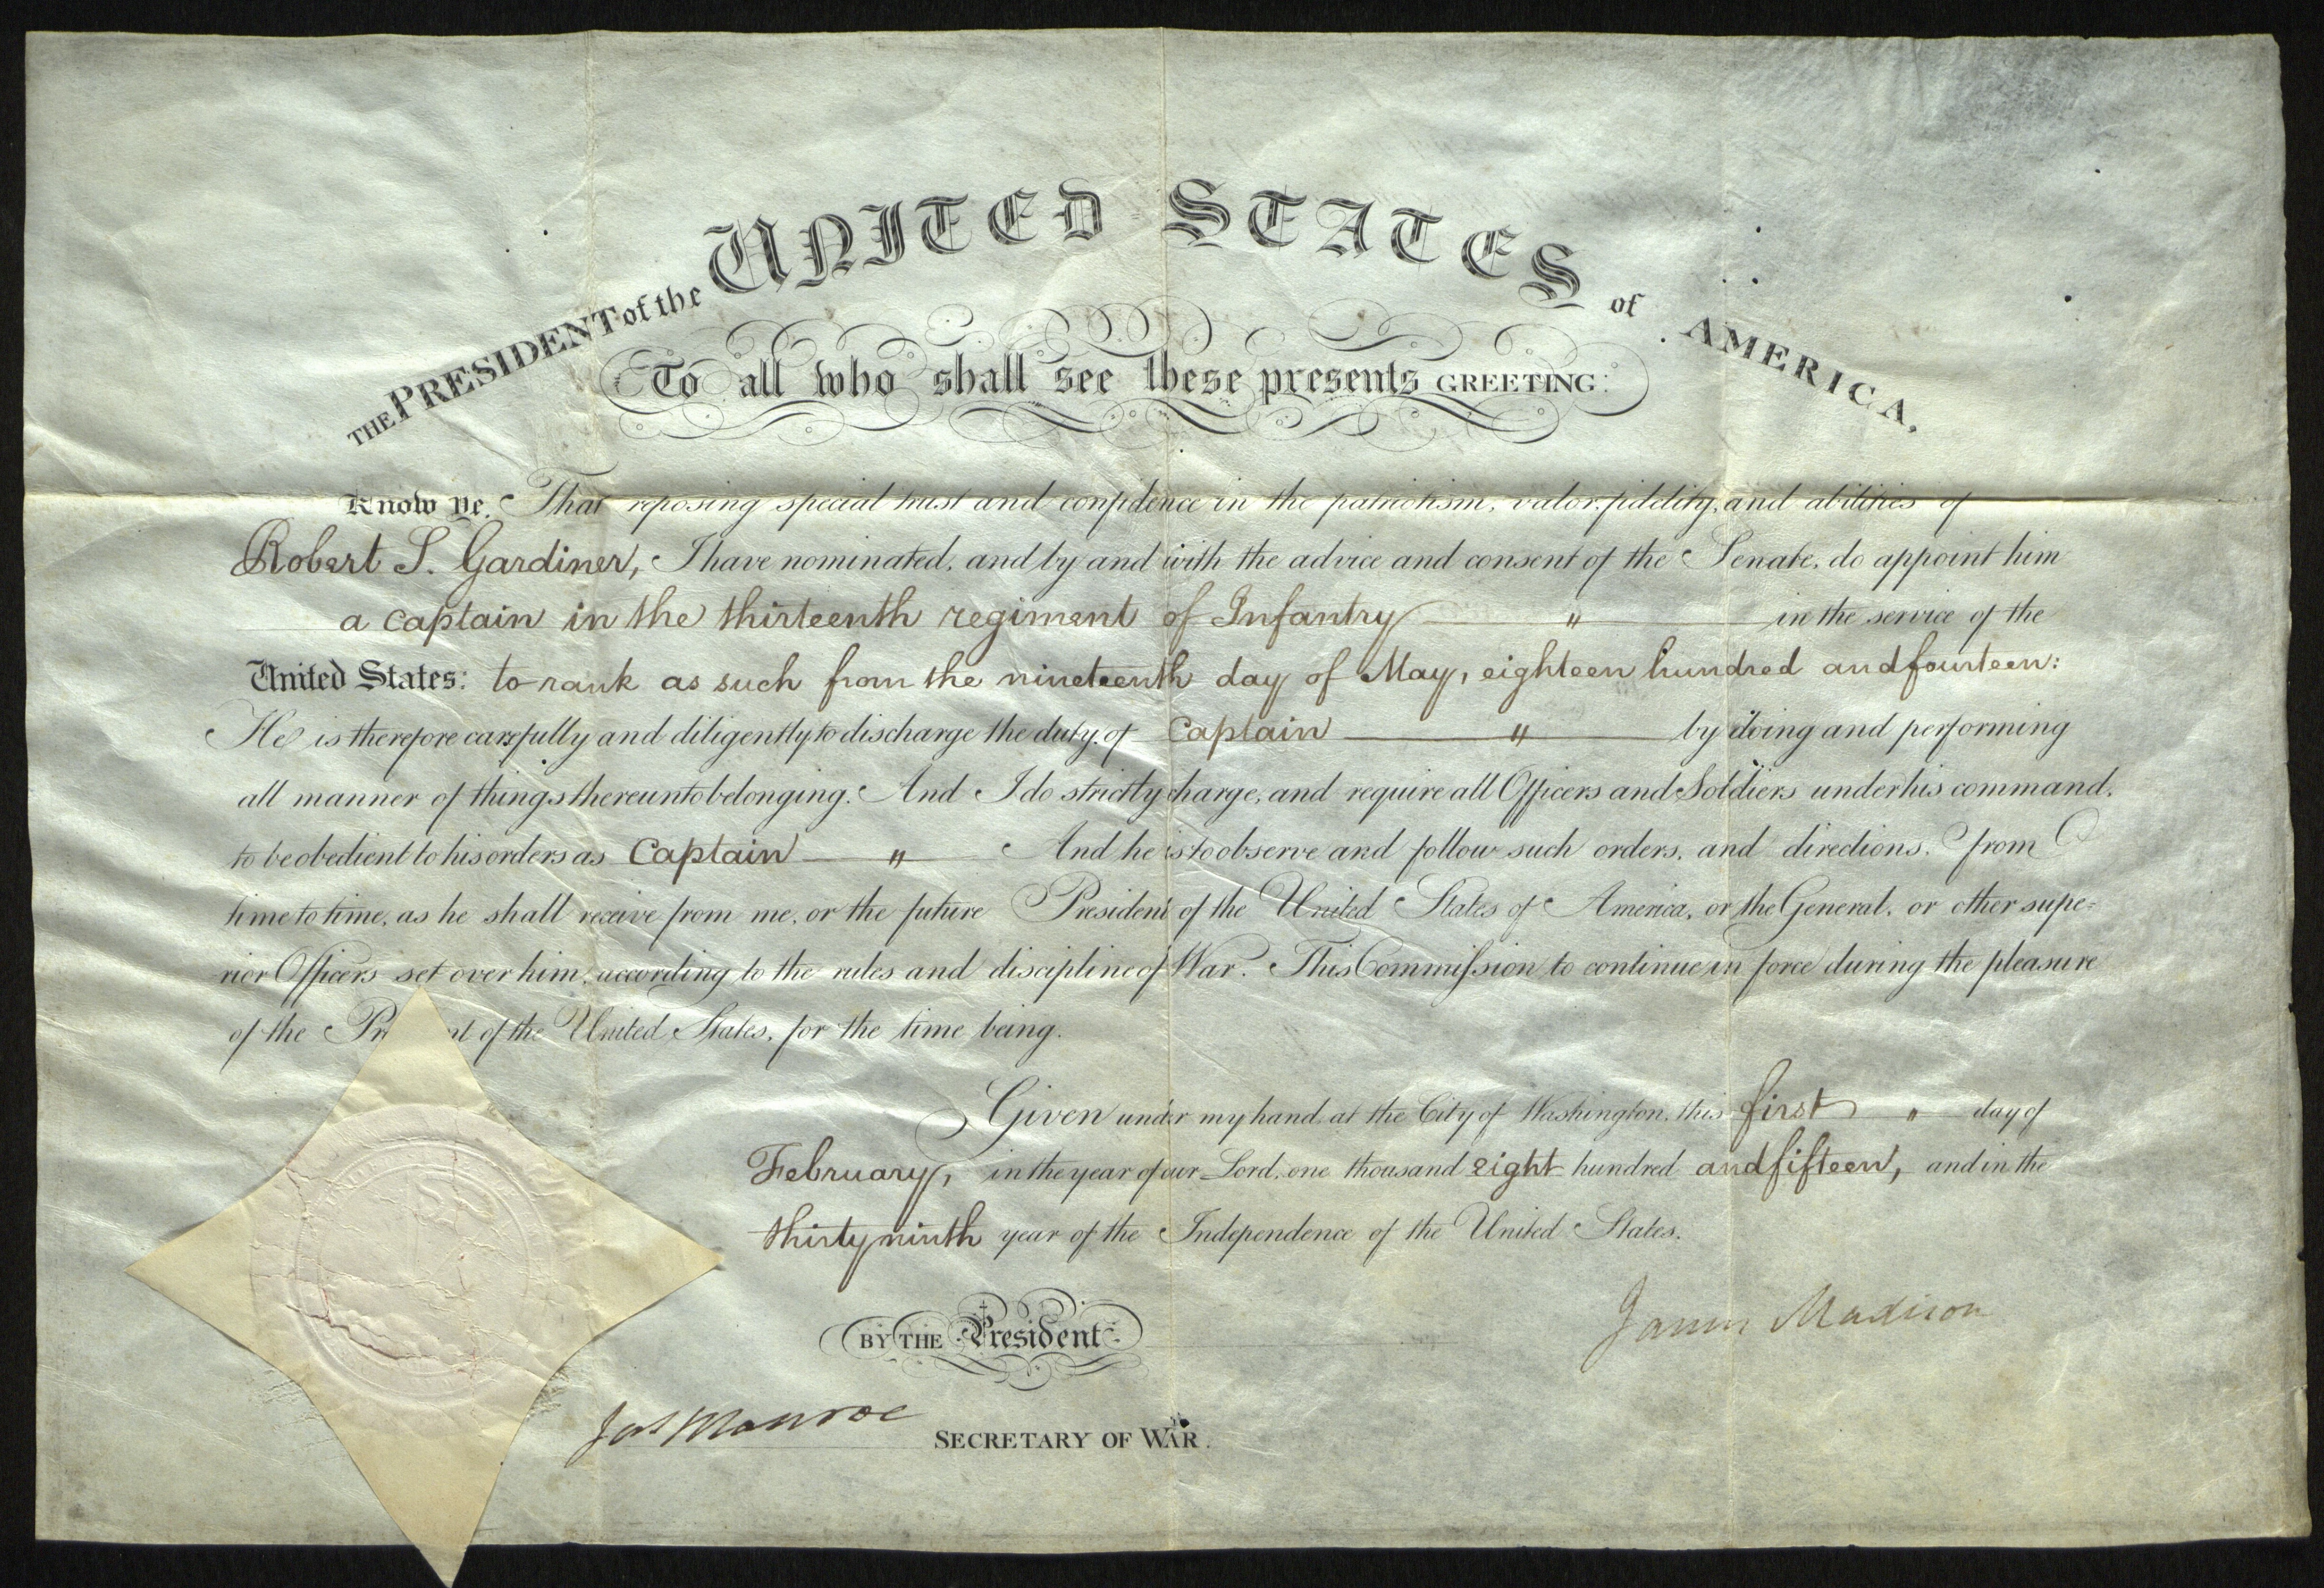 THE PRESIDENT of the UNITED STATES of AMERICA,
To all who shall see these presents GREETING:
Know Ye, That reposing special trust and confidence in the patriotism, valor, fidelity, and abilities of
Robert S. Gardiner, I have nominated, and by and with the advice and consent of the Senate, do appoint him
a captain in the thirteenth regiment of Infantry " in the service of the
United States: to rank as such from the nineteenth day of May, eighteen hundred and fourteen:
He is therefore carefully and diligently to discharge the duty of Captain " by doing and performing
all manner of things thereunto belonging. And I do strictly charge, and require all Officers and Soldiers under his command,
to be obedient to his orders as Captain " And he is to observe and follow such orders, and directions, from
time to time, as he shall receive from me, or the future President of the United States of America, or the General, or other supe=
rior Officers set over him, according to the rules and discipline of War. This Commission to continue in force during the pleasure
of the Pr nt of the United States, for the time being.
Given under my hand, at the City of Washington, this first " day of
February, in the year of our Lord, one thousand eight hundred and fifteen, and in the
thirty ninth year of the Independence of the United States.
James Madison
BY THE President
Jas Monroe SECRETARY OF WAR.